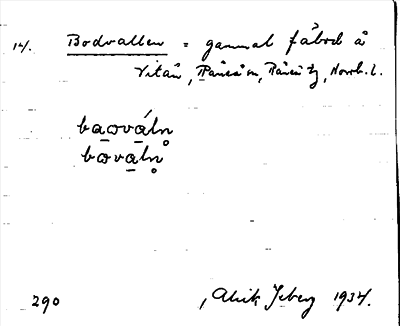 14. Bodvallen = gammal fäbod å
Vitån, Råneå sn, Råneå tg, Norrb. l.
baováln̥
bovaln̥
290
Alrik Iseberg 1934.